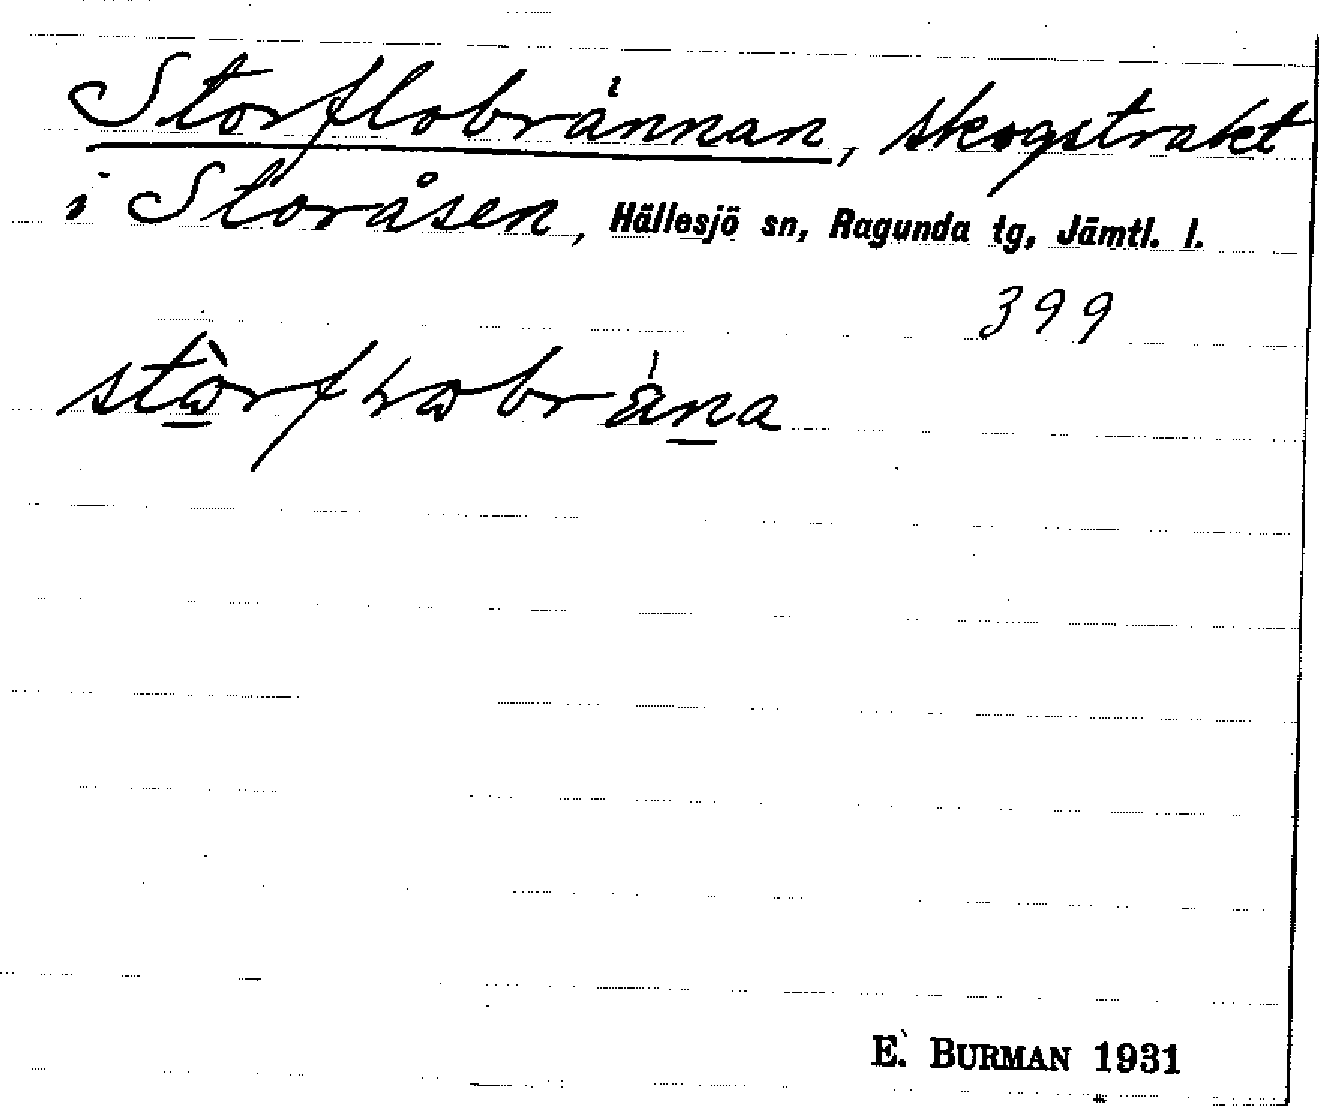 Storflobrännan, skogstrakt
i Storåsen, Hällesjö sn, Ragunda tg, Jämtl. l.
399
E. BURMAN 1931